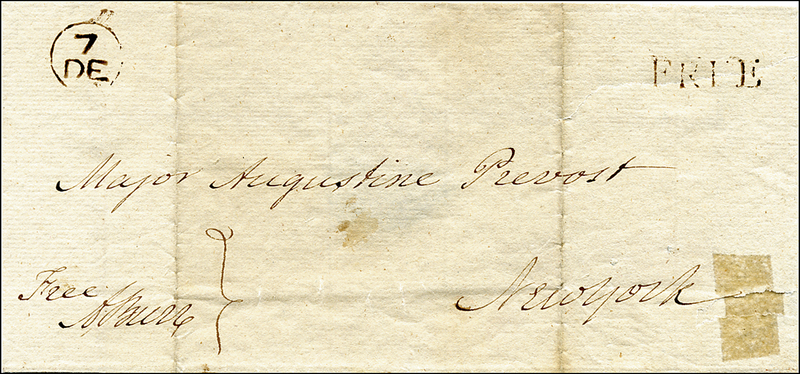 7
DE
FREE
Major Augustine Prevost
Free
A Burr
New York